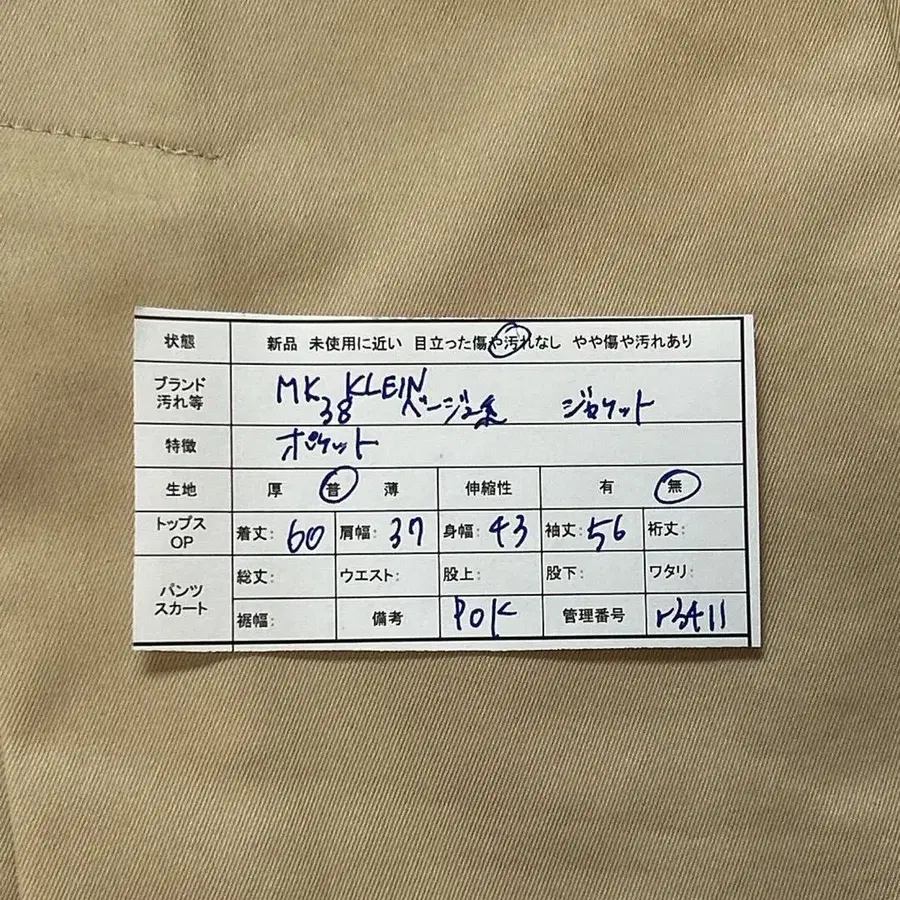 状態 新品 未使用に近い 目立った傷や汚れなし やや傷や汚れあり
ブランド 汚れ等 MK KLEIN
38 ベージュ系 ジャケット
特徴 ポケット
生地 厚 普 薄 伸縮性 有 無
トップス OP 着丈: 60 肩幅: 37 身幅: 43 袖丈: 56 裄丈:
パンツ スカート 総丈: ウエスト: 股上: 股下: ワタリ:
裾幅: 備考 POK 管理番号 r3411